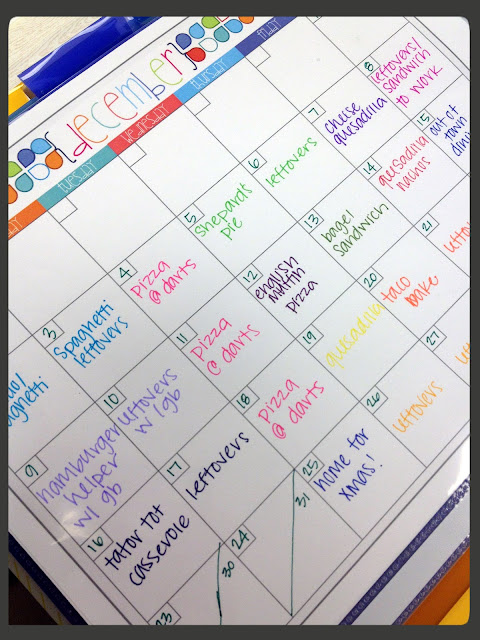 {december}
tuesday
wednesday
thursday
friday
3
spaghetti
leftovers
4
pizza
@ darts
5
shepard's
pie
6
leftovers
7
cheese
quesadilla
8
leftovers/
sandwich
to work
9
hamburger
helper
w/ gb
10
leftovers
w/ gb
11
pizza
@ darts
12
english
muffin
pizza
13
bagel
sandwich
14
quesadilla
nachos
15
out of
town
16
tator tot
casserole
17
leftovers
18
pizza
@ darts
19
quesadilla
20
taco
bake
21
23
30
24
31
25
home for
xmas!
26
leftovers
27